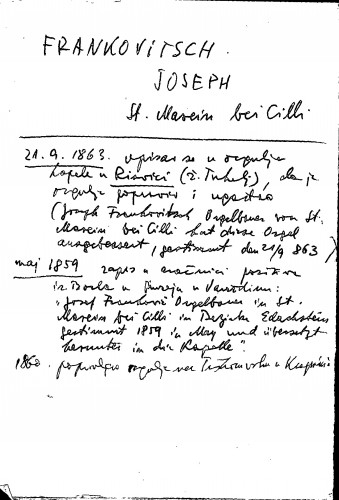 FRANKOVITSCH
JOSEPH
St. Marein bei Cilli
21.9.1863. upisao se u orgulje
kapele u (ž. Tuhelj), da je
orgulje popravio i ugodio
(Joseph Frankovitsch Orgelbauer von St.
Marein bei Cilli hat diese Orgel
ausgebessert, gestimmt den 21/9 863)
maj 1859 zapis u zračnici pozitiva
iz u Varaždinu:
"Josef Franković Orgelbauer in St.
Marein bei Cilli in Bezirke
gestimmt 1859 in May und übersetzt
herunter in die Kapelle".
1860. popravljao orgulje na u Krapini